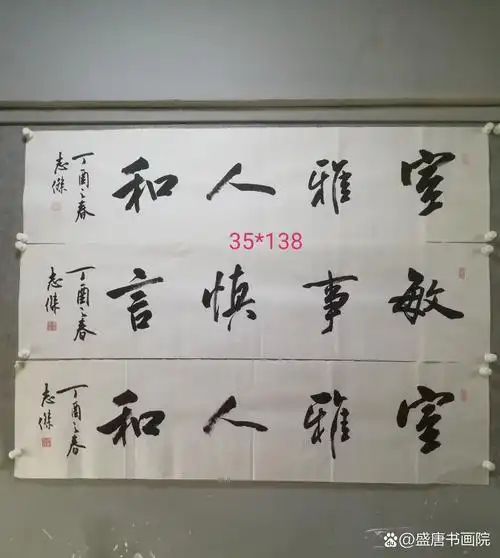 室雅人和
丁酉之春
志傑
35*138
敏事慎言
丁酉之春
志傑
室雅人和
丁酉之春
志傑
盛唐书画院